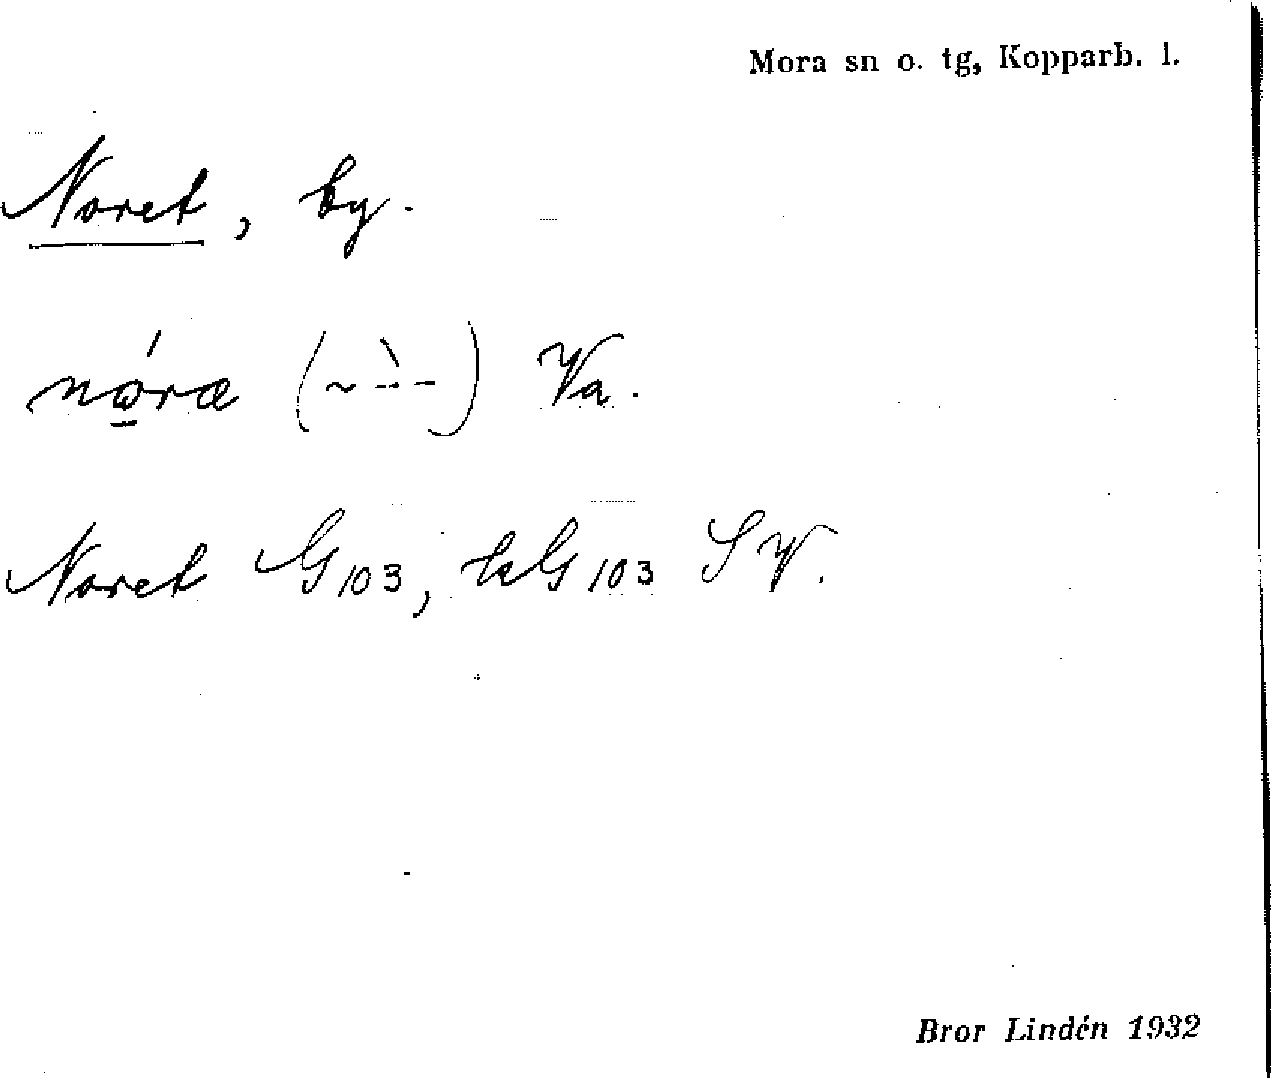 Mora sn o. tg, Kopparb. l.
Noret, by.
nǫ́ræ (~ -̀- -) Va.
Noret G 103, kG 103 SV.
Bror Lindén 1932